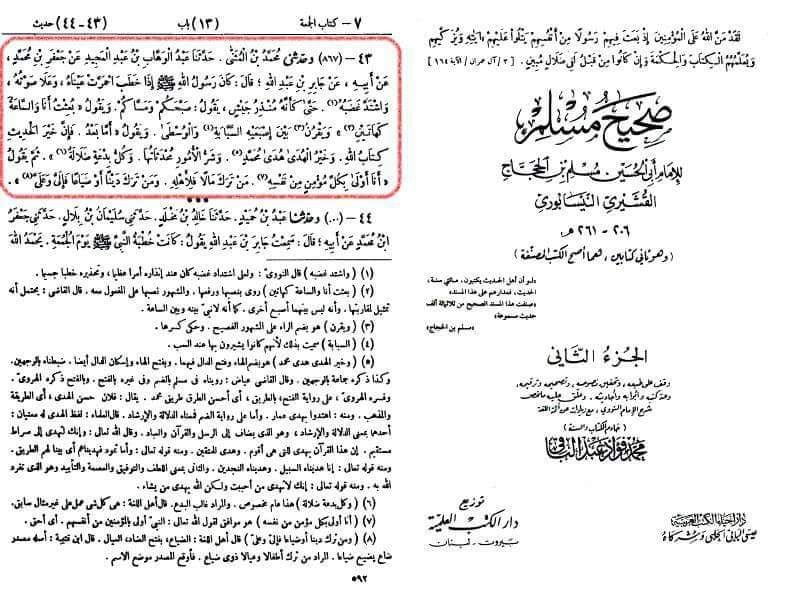 ٧ – كتاب الجمعة (١٣) باب (٤٣–٤٤) حديث
٤٣ – (٨٦٧) وحدثنى مُحَمَّدُ بْنُ الْمُثَنَّى . حَدَّثَنَا عَبْدُ الْوَهَّابِ بْنُ عَبْدِ الْمَجِيدِ عَنْ جَعْفَرِ بْنِ مُحَمَّدٍ،
عَنْ أَبِيهِ ، عَنْ جَابِرِ بْنِ عَبْدِ اللهِ ؛ قَالَ : كَانَ رَسُولُ اللهِ ﷺ إِذَا خَطَبَ احْمَرَّتْ عَيْنَاهُ ، وَعَلَا صَوْتُهُ ،
وَاشْتَدَّ غَضَبُهُ (١) . حَتَّى كَأَنَّهُ مُنْذِرُ جَيْشٍ ، يَقُولُ : صَبَّحَكُمْ وَمَسَّاكُمْ . وَيَقُولُ « بُعِثْتُ أَنَا وَالسَّاعَةَ
كَهَاتَيْنِ (٢) » وَيَقْرُنُ (٣) بَيْنَ إِصْبَعَيْهِ السَّبَّابَةِ (٤) وَالْوُسْطَى . وَيَقُولُ « أَمَّا بَعْدُ . فَإِنَّ خَيْرَ الْحَدِيثِ
كِتَابُ اللهِ . وَخَيْرُ الْهُدَى هُدَى مُحَمَّدٍ (٥) . وَشَرُّ الْأُمُورِ مُحْدَثَاتُهَا . وَكُلُّ بِدْعَةٍ ضَلَالَةٌ (٦) » . ثُمَّ يَقُولُ
« أَنَا أَوْلَىٰ بِكُلِّ مُؤْمِنٍ مِنْ نَفْسِهِ (٧) . مَنْ تَرَكَ مَالًا فَلِأَهْلِهِ . وَمَنْ تَرَكَ دَيْنًا أَوْ ضَيَاعًا فَإِلَىَّ وَعَلَىَّ (٨) » .
٤٤ – (...) وحدثنا عَبْدُ بْنُ حُمَيْدٍ . حَدَّثَنَا خَالِدُ بْنُ مَخْلَدٍ . حَدَّثَنِى سُلَيْمَانُ بْنُ بِلَالٍ . حَدَّثَنِى جَعْفَرُ
ابْنُ مُحَمَّدٍ عَنْ أَبِيهِ ؛ قَالَ : سَمِعْتُ جَابِرَ بْنَ عَبْدِ اللهِ يَقُولُ : كَانَتْ خُطْبَةُ النَّبِيِّ ﷺ يَوْمَ الْجُمُعَةِ . يَحْمَدُ اللهَ
(١) (واشتد غضبه) قال النووىّ : ولعل اشتداد غضبه كان عند إنذاره أمرا عظيما ، وتحذيره خطبا جسيما .
(٢) (بعثت أنا والساعة كهاتين) روى بنصبها ورفعها . والمشهور نصبها على المفعول معه . قال القاضى : يحتمل أنه
تمثيل لمقاربتها . وأنه ليس بينهما أصبع أخرى . كما أنه لا نبىّ بينه وبين الساعة .
(٣) (ويقرن) هو بضم الراء على المشهور الفصيح . وحكى كسرها .
(٤) (السبابة) سميت بذلك لأنهم كانوا يشيرون بها عند السب .
(٥) (وخير الهدى هدى محمد) هو بضم الهاء وفتح الدال فيهما . وبفتح الهاء وإسكان الدال أيضا . ضبطناه بالوجهين .
وكذا ذكره جماعة بالوجهين . وقال القاضى عياض : رويناه فى مسلم بالضم وفى غيره بالفتح . وبالفتح ذكره الهروىّ .
وفسره الهروىّ ، على رواية الفتح ، بالطريق ، أى أحسن الطرق طريق محمد . يقال : فلان حسن الهدى ، أى الطريقة
والمذهب . ومنه : اهتدوا بهدى عمار . وأما على رواية الضم فمعناه الدلالة والإرشاد . قال العلماء : لفظ الهدى له معنيان :
أحدهما بمعنى الدلالة والإرشاد ، وهو الذى يضاف إلى الرسل والقرآن والعباد . وقال الله تعالى : وإنك لتهدى إلى صراط
مستقيم . إن هذا القرآن يهدى للتى هى أقوم . وهدى للمتقين . ومنه قوله تعالى : وأما ثمود فهديناهم أى بينا لهم الطريق .
ومنه قوله تعالى : إنا هديناه السبيل . وهديناه النجدين . والثانى بمعنى اللطف والتوفيق والعصمة والتأييد وهو الذى تفرد
الله به . ومنه قوله تعالى : إنك لا تهدى من أحببت ولكن الله يهدى من يشاء .
(٦) (وكل بدعة ضلالة) هذا عام مخصوص . والمراد غالب البدع . قال أهل اللغة : هى كل شىء عمل على غير مثال سابق .
(٧) (أنا أولى بكل مؤمن من نفسه) هو موافق لقول الله تعالى : النبىّ أولى بالمؤمنين من أنفسهم . أى أحق .
(٨) (ومن ترك دينا أو ضياعا فإلىّ وعلىّ) قال أهل اللغة : الضياع ، بفتح الضاد ، العيال . قال ابن قتيبة : أصله مصدر
ضاع يضيع ضياعا . المراد من ترك أطفالا وعيالا ذوى ضياع . فأوقع المصدر موضع الاسم .
٥٩٢
لَقَدْ مَنَّ اللهُ عَلَى الْمُؤْمِنِينَ إِذْ بَعَثَ فِيهِمْ رَسُولًا مِنْ أَنْفُسِهِمْ يَتْلُوا عَلَيْهِمْ آيَاتِهِ وَيُزَكِّيهِمْ
وَيُعَلِّمُهُمُ الْكِتَابَ وَالْحِكْمَةَ وَإِنْ كَانُوا مِنْ قَبْلُ لَفِى ضَلَالٍ مُبِينٍ . [ ٣ / آل عمران / الآية ١٦٤ ]
صحيح مسلم
للإمام أبى الحسين مسلم بن الحجاج
القشيرى النيسابورى
٢٠٦ – ٢٦١ هـ
( وهو ثانى كتابين ، هما أصح الكتب المصنفة )
« لو أن أهل الحديث يكتبون ، مائتى سنة ،
الحديث ، فمدارهم على هذا المسند »
« صنفت هذا المسند الصحيح من ثلاثمائة ألف
حديث مسموعة »
« مسلم بن الحجاج »
الجزء الثانى
وقف على طبعه ، وتحقيق نصوصه ، وتصحيحه وترقيمه ،
وعد كتبه وأبوابه وأحاديثه ، وعلق عليه ملخص
شرح الإمام النووى ، مع زيادات عن أئمة اللغة
( خادم الكتاب والسنة )
محمد فؤاد عبد الباقى
توزيع
دار الكتب العلمية
بيروت - لبنان
دار إحياء الكتب العربية
عيسى البابى الحلبى وشركاه